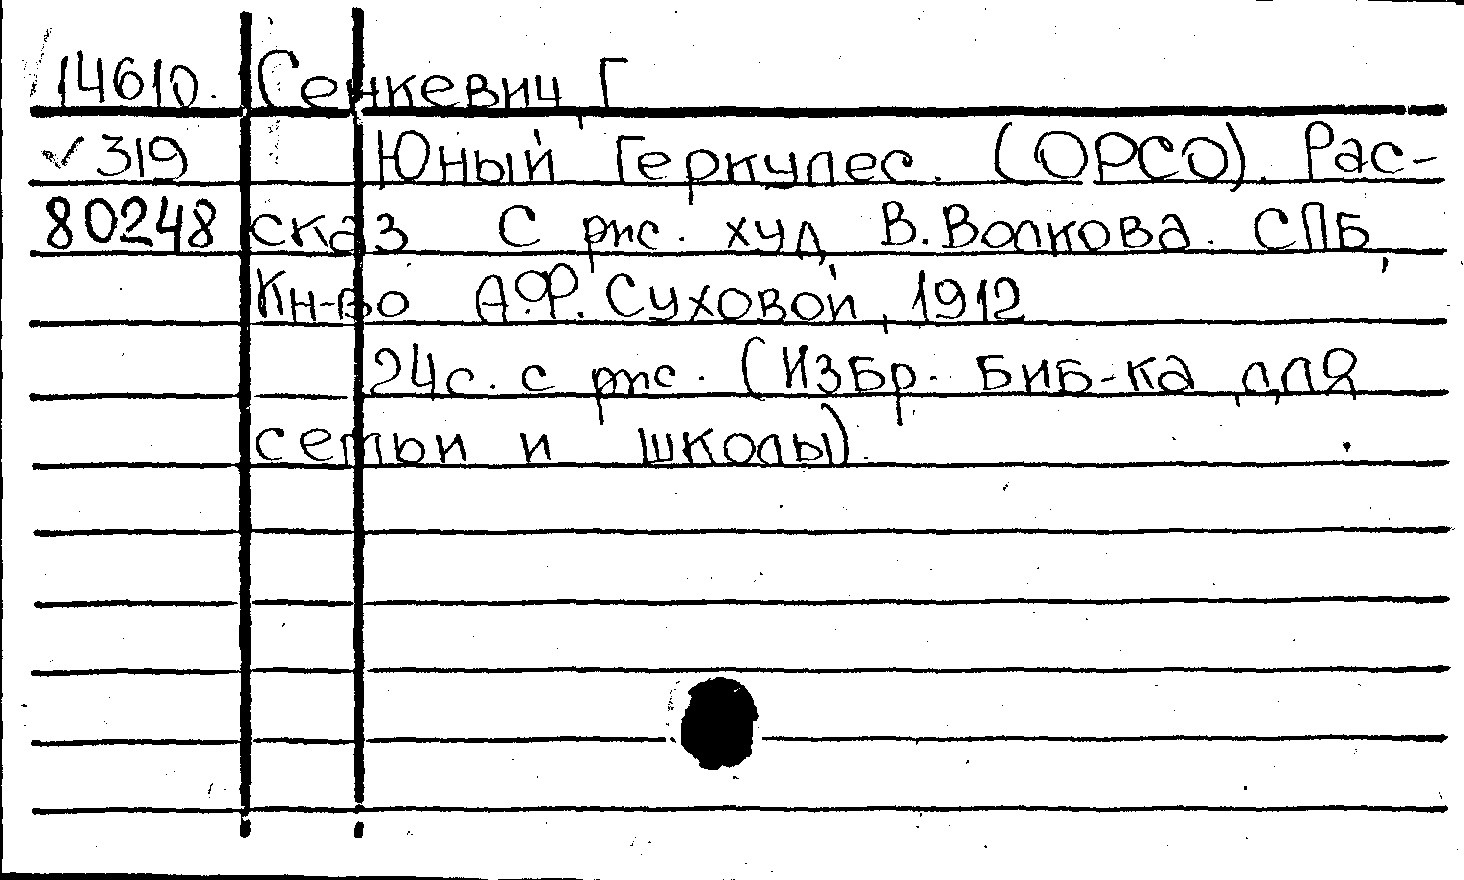 14610. Сенкевич, Г
319 Юный Геркулес. (ОРСО). Рас-
80248 сказ С рис. худ. В. Волкова. СПБ,
Кн-во А.Ф. Суховой, 1912
24с. с рис. (Избр. биб-ка для
семьи и школы).